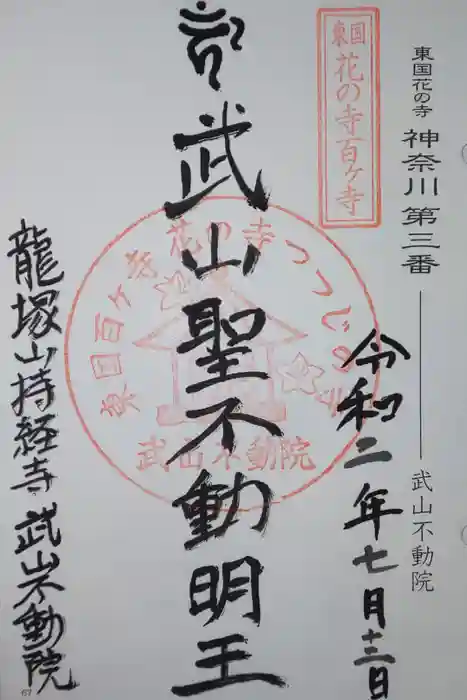 東国花の寺 神奈川 第三番 武山不動院
東国
花の寺百ヶ寺
令和二年七月十三日
武山聖不動明王
東国百ヶ寺 花の寺 つつじの寺
武山不動院
龍塚山持経寺 武山不動院
67